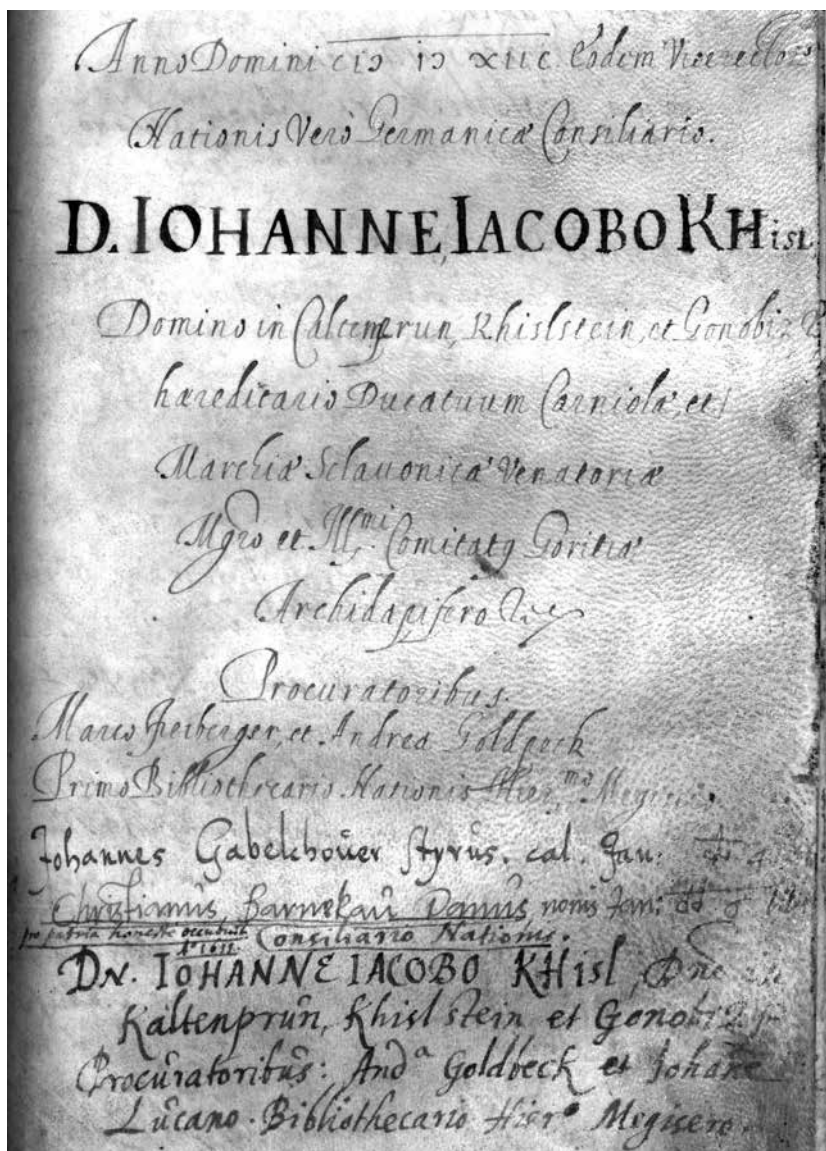 Anno Domini cIɔ Iɔ XIIC Eodem Vicerectore
Nationis Verò Germanicæ Consiliario.
D. IOHANNE, IACOBO KHisl,
Domino in Caltemprun, Khislstein, et Gonobiz
hæreditario Ducatuum Carniolæ, et
Marchiæ Sclavonicæ Venatoriæ
Mgro et Ill.mi Comitatq Goritiæ
Archidapifero
Procuratoribus.
Marco Freiberger, et Andrea Goldpeck
Primo Bibliothecario Nationis Hier.mo Megisero.
Johannes Gabelchoŭer Styrŭs. cal. Jan:
Christianŭs Barnekaŭ Danŭs nonis Jan:
pro patria honeste occubuit
Aº 1612.
Consiliario Nationis.
DN. IOHANNE IACOBO KHisl, Dno
Kaltenprŭn, Khisl stein et Gonobiz
Procŭratoribŭs: Andª Goldbeck et Johane
Lŭcano. Bibliothecario Hierº Megisero.